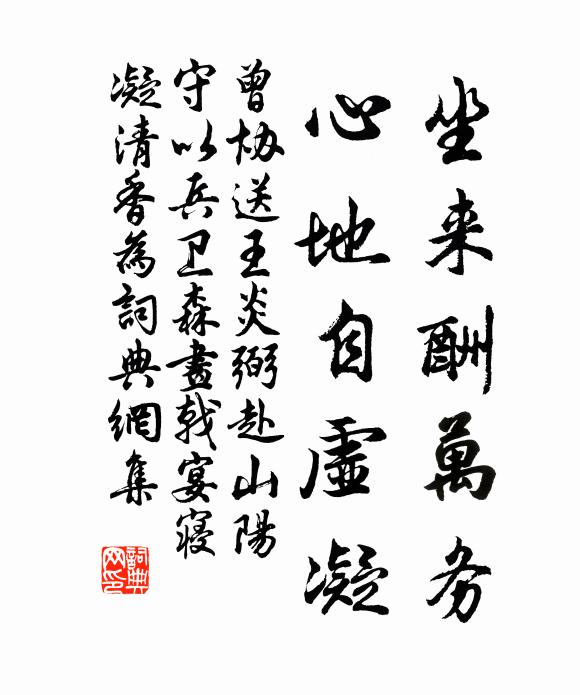 坐来酬萬务
心地自虚凝
曾协送王炎弼赴山陽
守以兵卫森畫戟宴寝
凝清香為詞典網集
詞典网印